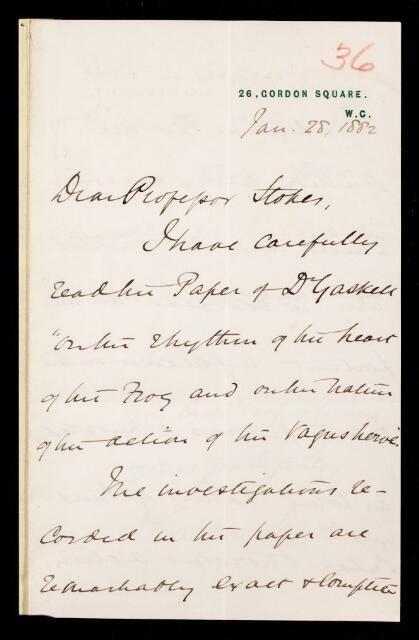 36
26, GORDON SQUARE.
W.C.
Jan. 28, 1882
Dear Professor Stokes,
I have carefully
read the Paper of Dr Gaskell
"on the Rhythm of the heart
of the Frog and on the nature
of the action of the Vagus nerve."
The investigations re-
corded in the paper are
remarkably exact & complete